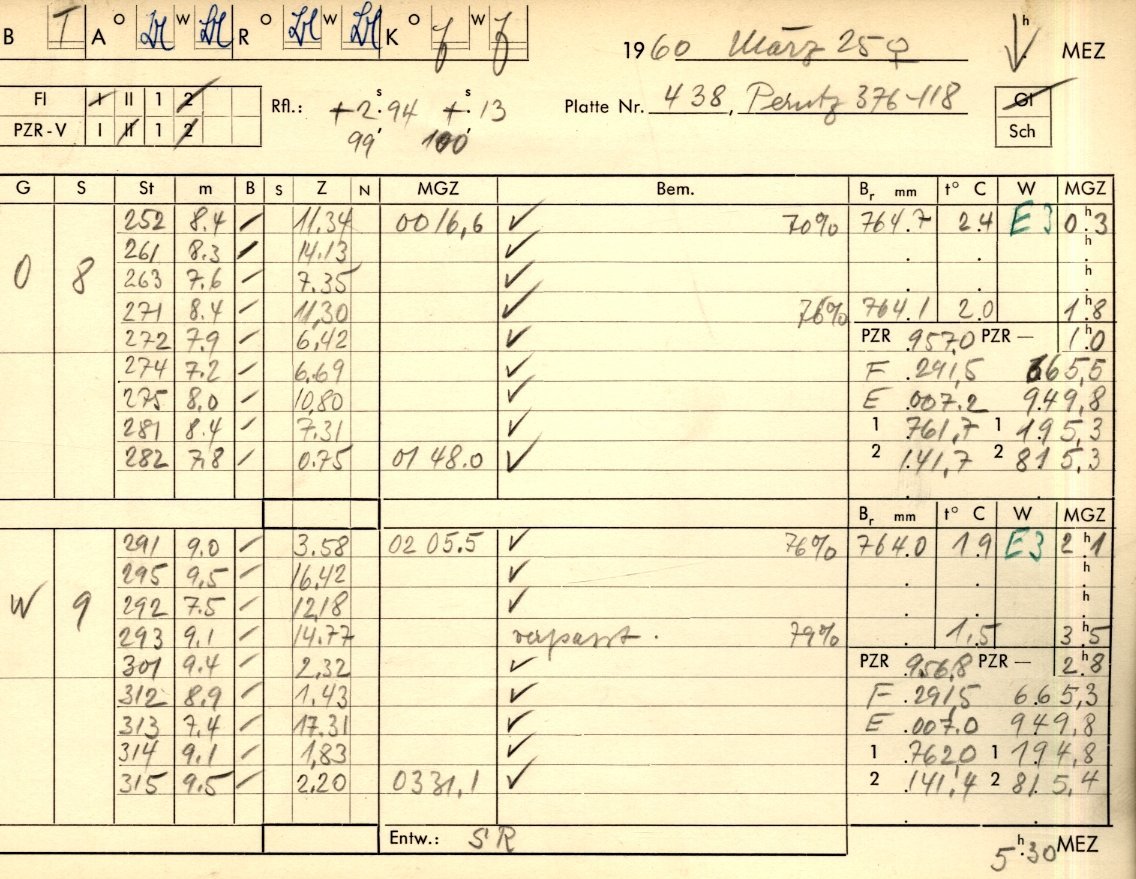 B T A o W R o W K o W 1960 März 25 ♀ h MEZ
FI I II 1 2 Rfl.: +2.s94 +.s13 Platte Nr. 438, Perutz 376-118 Gl
PZR-V I II 1 2 99' 100' Sch
G S St m B S Z N MGZ Bem. Br mm t° C W MGZ
252 8.4 11,34 00 16,6 ✓ 70% 764.7 2.4 E3 0.h3
261 8.3 14.13 ✓ h
O 8 263 7.6 7.35 ✓ h
271 8.4 11,30 ✓ 76% 764.1 2.0 1.h8
272 7.9 6,42 ✓ PZR .957.0 PZR — 1.h0
274 7.2 6.69 ✓ F .291,5 665,5
275 8,0 10,80 ✓ E .007.2 949,8
281 8.4 7.31 ✓ 1 .761,7 1 195,3
282 7,8 0.75 01 48.0 ✓ 2 .141,7 2 815,3
Br mm t° C W MGZ
291 9.0 3.58 02 05.5 ✓ 76% 764.0 1.9 E3 2.h1
295 9,5 16,42 ✓ h
W 9 292 7.5 12,18 ✓ h
293 9.1 14.77 verpasst. 79% 1,5 3.h5
301 9.4 2,32 ✓ PZR .956,8 PZR — 2.h8
312 8,9 1.43 ✓ F .291,5 665,3
313 7,4 17.31 ✓ E .007.0 949,8
314 9.1 1,83 ✓ 1 .762,0 1 194,8
315 9.5 2,20 03 31,1 ✓ 2 .141,4 2 815,4
Entw.: SR 5h.30 MEZ